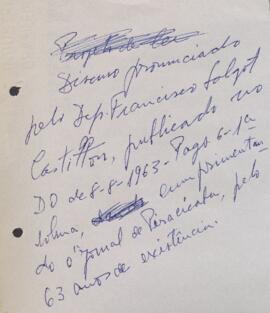 Projeto de Lei
Discurso pronunciado
pelo Dep. Francisco Salgot
Castillon, publicado no
DO de 8-8-1963 - Pag. 6 - 1a
coluna, cumprimentan
do o "Jornal de Piracicaba, pelo
63 anos de existência.